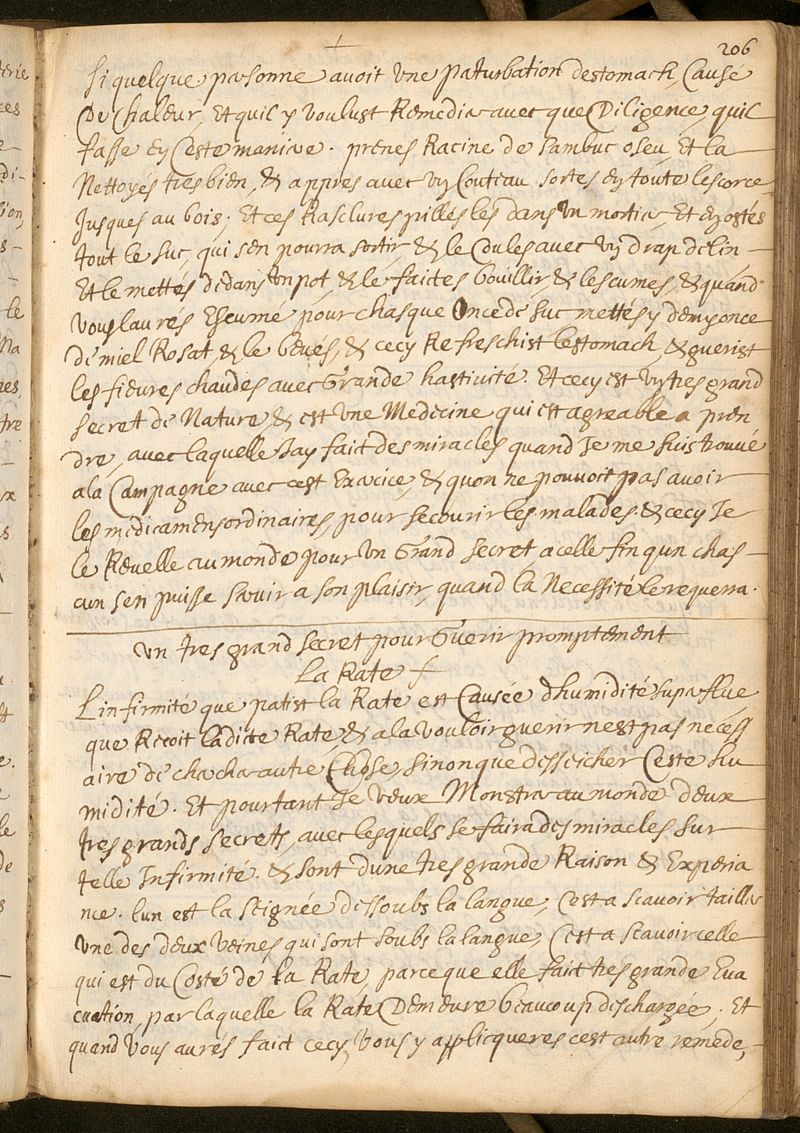 206
Si quelque personne avoit Une paturbation destomach, Causé
De Chaleur, Et quil y voulust Remedier avec que Diligence, quil
fasse en Ceste maniere. prenes Racine de sambuc o seu, Et la
Nettoyés tres bien, & appres avec un Couteau sortes en toute lescorce
Jusques au bois; Et ces Rasclures pilles les dans un mortier, Et en ostés
tout le suc, qui sen pourra sortir, & le Coules avec un drap de lin
Et le mettés dedans un pot, & le faictes bouillir & lescumes, & quand
vous laures Escumé pour chasque Once de suc mettés y demy once
de miel Rosat, & le beues, & cecy Refreschist lestomach, & guerist
les fieures chaudes avec Grande hastivité. Et cecy est un tres grand
secret de Nature & est Une Medecine qui est agreable a pren
dre, avec laquelle Jay faict des miracles quand Je me suis trouvé
a la Campagne avec cest Exercice, & quon ne pouvoit pas avoir
les medicamens ordinaires, pour secourir les malades & cecy Je
le Revelle au monde pour Un Grand secret a celle fin qun chas-
cun sen puisse servir a son plaisir, quand la Necessité le requerra.
Un tres grand secret pour Guerir promptement
La Rate
Linfirmité que patist la Rate est Causée dhumidité superflue
que Recoit ladicte Rate, & a la vouloir guerir nest pas necess
aire de chacha autre Chose sinon que desseicher Ceste hu
midité. Et pourtant Je veux Monstrer au monde deux
tres grands secrets, avec lesquels se faira des miracles sur
telle Infirmité. & sont dune tres grande Raison & Experia
nce. lun est la seignée dessoubs la langue, Cest a scavoir tailler
Une des deux veines qui sont soubs la langue, Cest a scavoir celle
qui est du Costé de la Rate, parce que elle faict tres grande Eva
cuation, par laquelle la Rate Demeure beaucoup deschargée; Et
quand vous aurés faict cecy, vous y applicqueres cest autre remede,